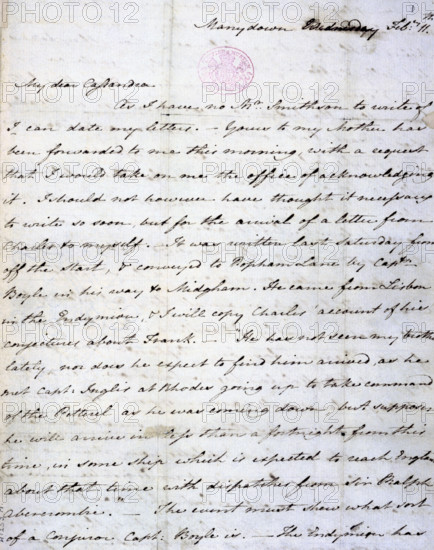 Manydown Wednesday Feb:ry 11th.
My dear Cassandra
As I have no Mr. Smithson to write of
I can date my letters. — Yours to my Mother has
been forwarded to me this morning, with a request
that I would take on me the office of acknowledging
it. I should not however have thought it necessary
to write so soon, but for the arrival of a letter from
Charles to myself. — It was written last Saturday from
off the Start, & conveyed to Popham Lane by Captn
Boyle in his way to Midgham. He came from Lisbon
in the Endymion, & I will copy Charles' account of his
conjectures about Frank. — He has not seen my brother
lately, nor does he expect to find him arrived, as he
met Capt: Inglis at Rhodes going up to take command
of the Petterel as he was coming down, but supposes
he will arrive in less than a fortnight from this
time, in some ship which is expected to reach England
about that time with dispatches from Sir Ralph
Abercrombie." — The event must shew what sort
of a Conjuror Capt: Boyle is. — The Endymion has